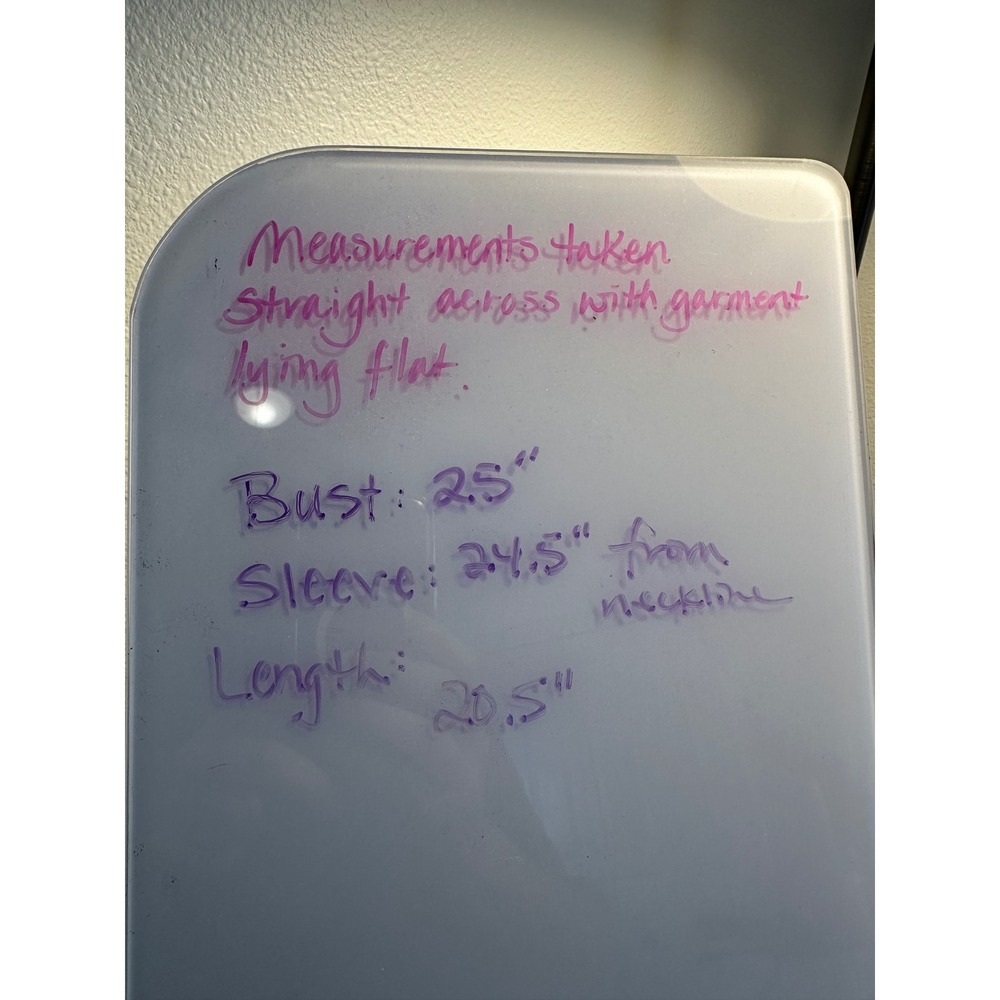 Measurements taken
straight across with garment
lying flat.
Bust: 25"
Sleeve: 24.5" from
neckline
Length: 20.5"